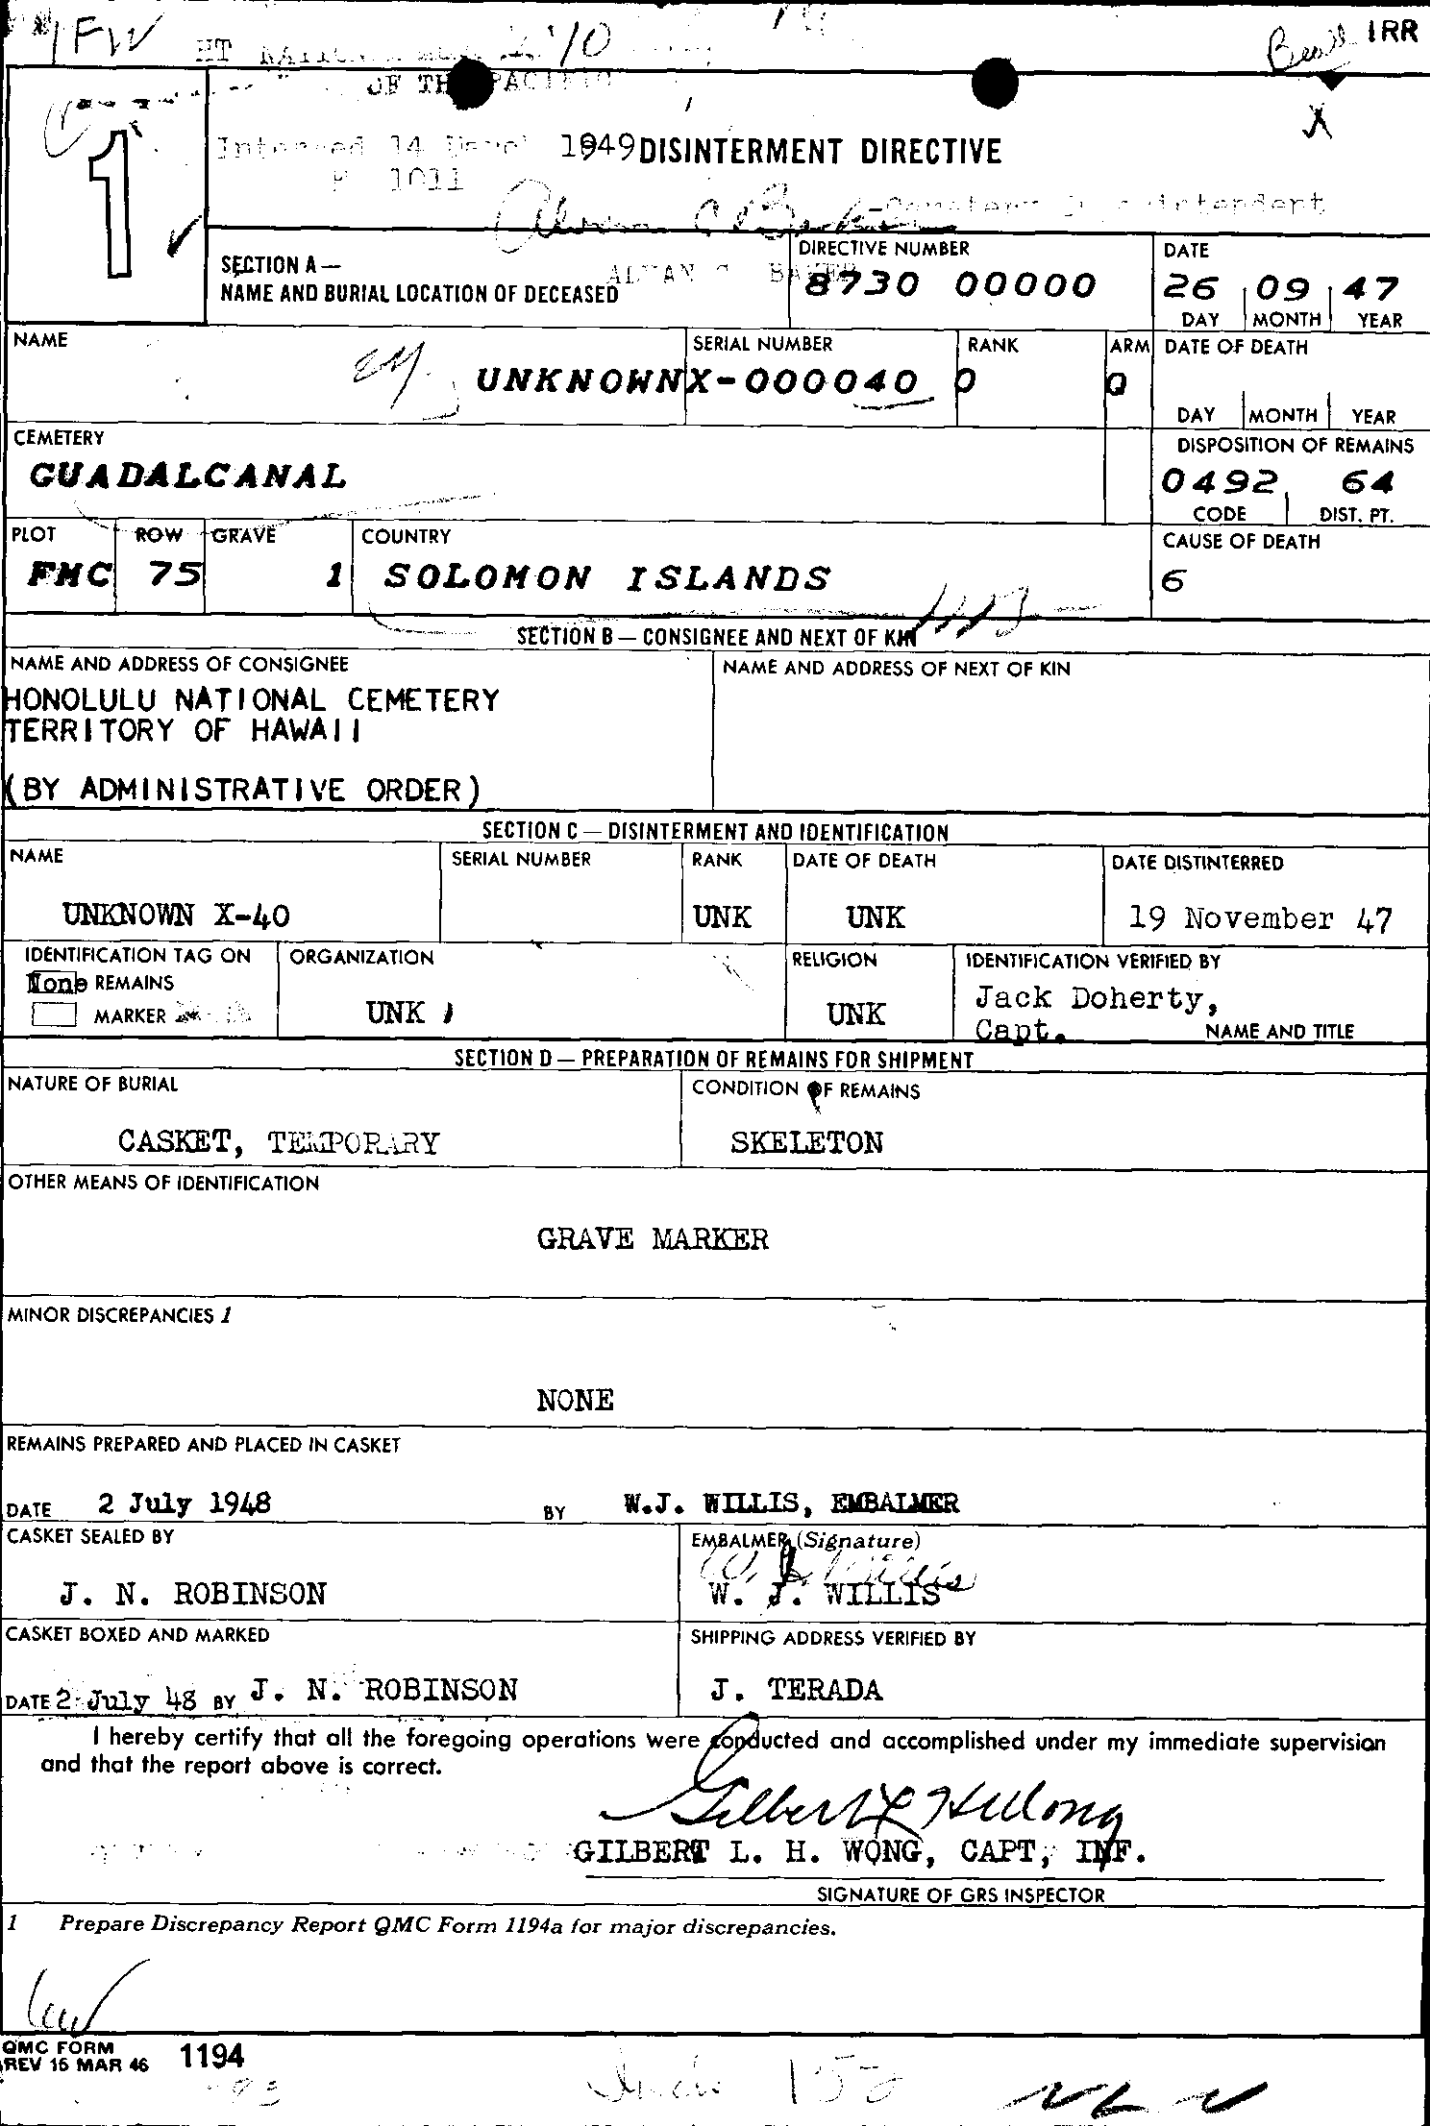 IFW
IRR
OF THE PACIFIC
X
1
Interred 14 March 1949 DISINTERMENT DIRECTIVE
1011
Cemetery Superintendent
SECTION A —
NAME AND BURIAL LOCATION OF DECEASED
ALVAN C. BAKER
DIRECTIVE NUMBER
8730 00000
DATE
26 09 47
DAY MONTH YEAR
NAME
UNKNOWN
SERIAL NUMBER
X-000040
RANK
0
ARM
0
DATE OF DEATH
DAY MONTH YEAR
CEMETERY
GUADALCANAL
DISPOSITION OF REMAINS
0492 64
CODE DIST. PT.
PLOT ROW GRAVE COUNTRY
FMC 75 1 SOLOMON ISLANDS
CAUSE OF DEATH
6
SECTION B — CONSIGNEE AND NEXT OF KIN
NAME AND ADDRESS OF CONSIGNEE
HONOLULU NATIONAL CEMETERY
TERRITORY OF HAWAII
(BY ADMINISTRATIVE ORDER)
NAME AND ADDRESS OF NEXT OF KIN
SECTION C — DISINTERMENT AND IDENTIFICATION
NAME SERIAL NUMBER RANK DATE OF DEATH DATE DISTINTERRED
UNKNOWN X-40 UNK UNK 19 November 47
IDENTIFICATION TAG ON
None REMAINS
MARKER
ORGANIZATION
UNK
RELIGION
UNK
IDENTIFICATION VERIFIED BY
Jack Doherty,
Capt. NAME AND TITLE
SECTION D — PREPARATION OF REMAINS FOR SHIPMENT
NATURE OF BURIAL
CASKET, TEMPORARY
CONDITION OF REMAINS
SKELETON
OTHER MEANS OF IDENTIFICATION
GRAVE MARKER
MINOR DISCREPANCIES 1
NONE
REMAINS PREPARED AND PLACED IN CASKET
DATE 2 July 1948 BY W.J. WILLIS, EMBALMER
CASKET SEALED BY
J. N. ROBINSON
EMBALMER (Signature)
W. J. Willis
W. J. WILLIS
CASKET BOXED AND MARKED
DATE 2 July 48 BY J. N. ROBINSON
SHIPPING ADDRESS VERIFIED BY
J. TERADA
I hereby certify that all the foregoing operations were conducted and accomplished under my immediate supervision
and that the report above is correct.
GILBERT L. H. WONG, CAPT, INF.
SIGNATURE OF GRS INSPECTOR
1 Prepare Discrepancy Report QMC Form 1194a for major discrepancies.
QMC FORM
REV 15 MAR 46 1194